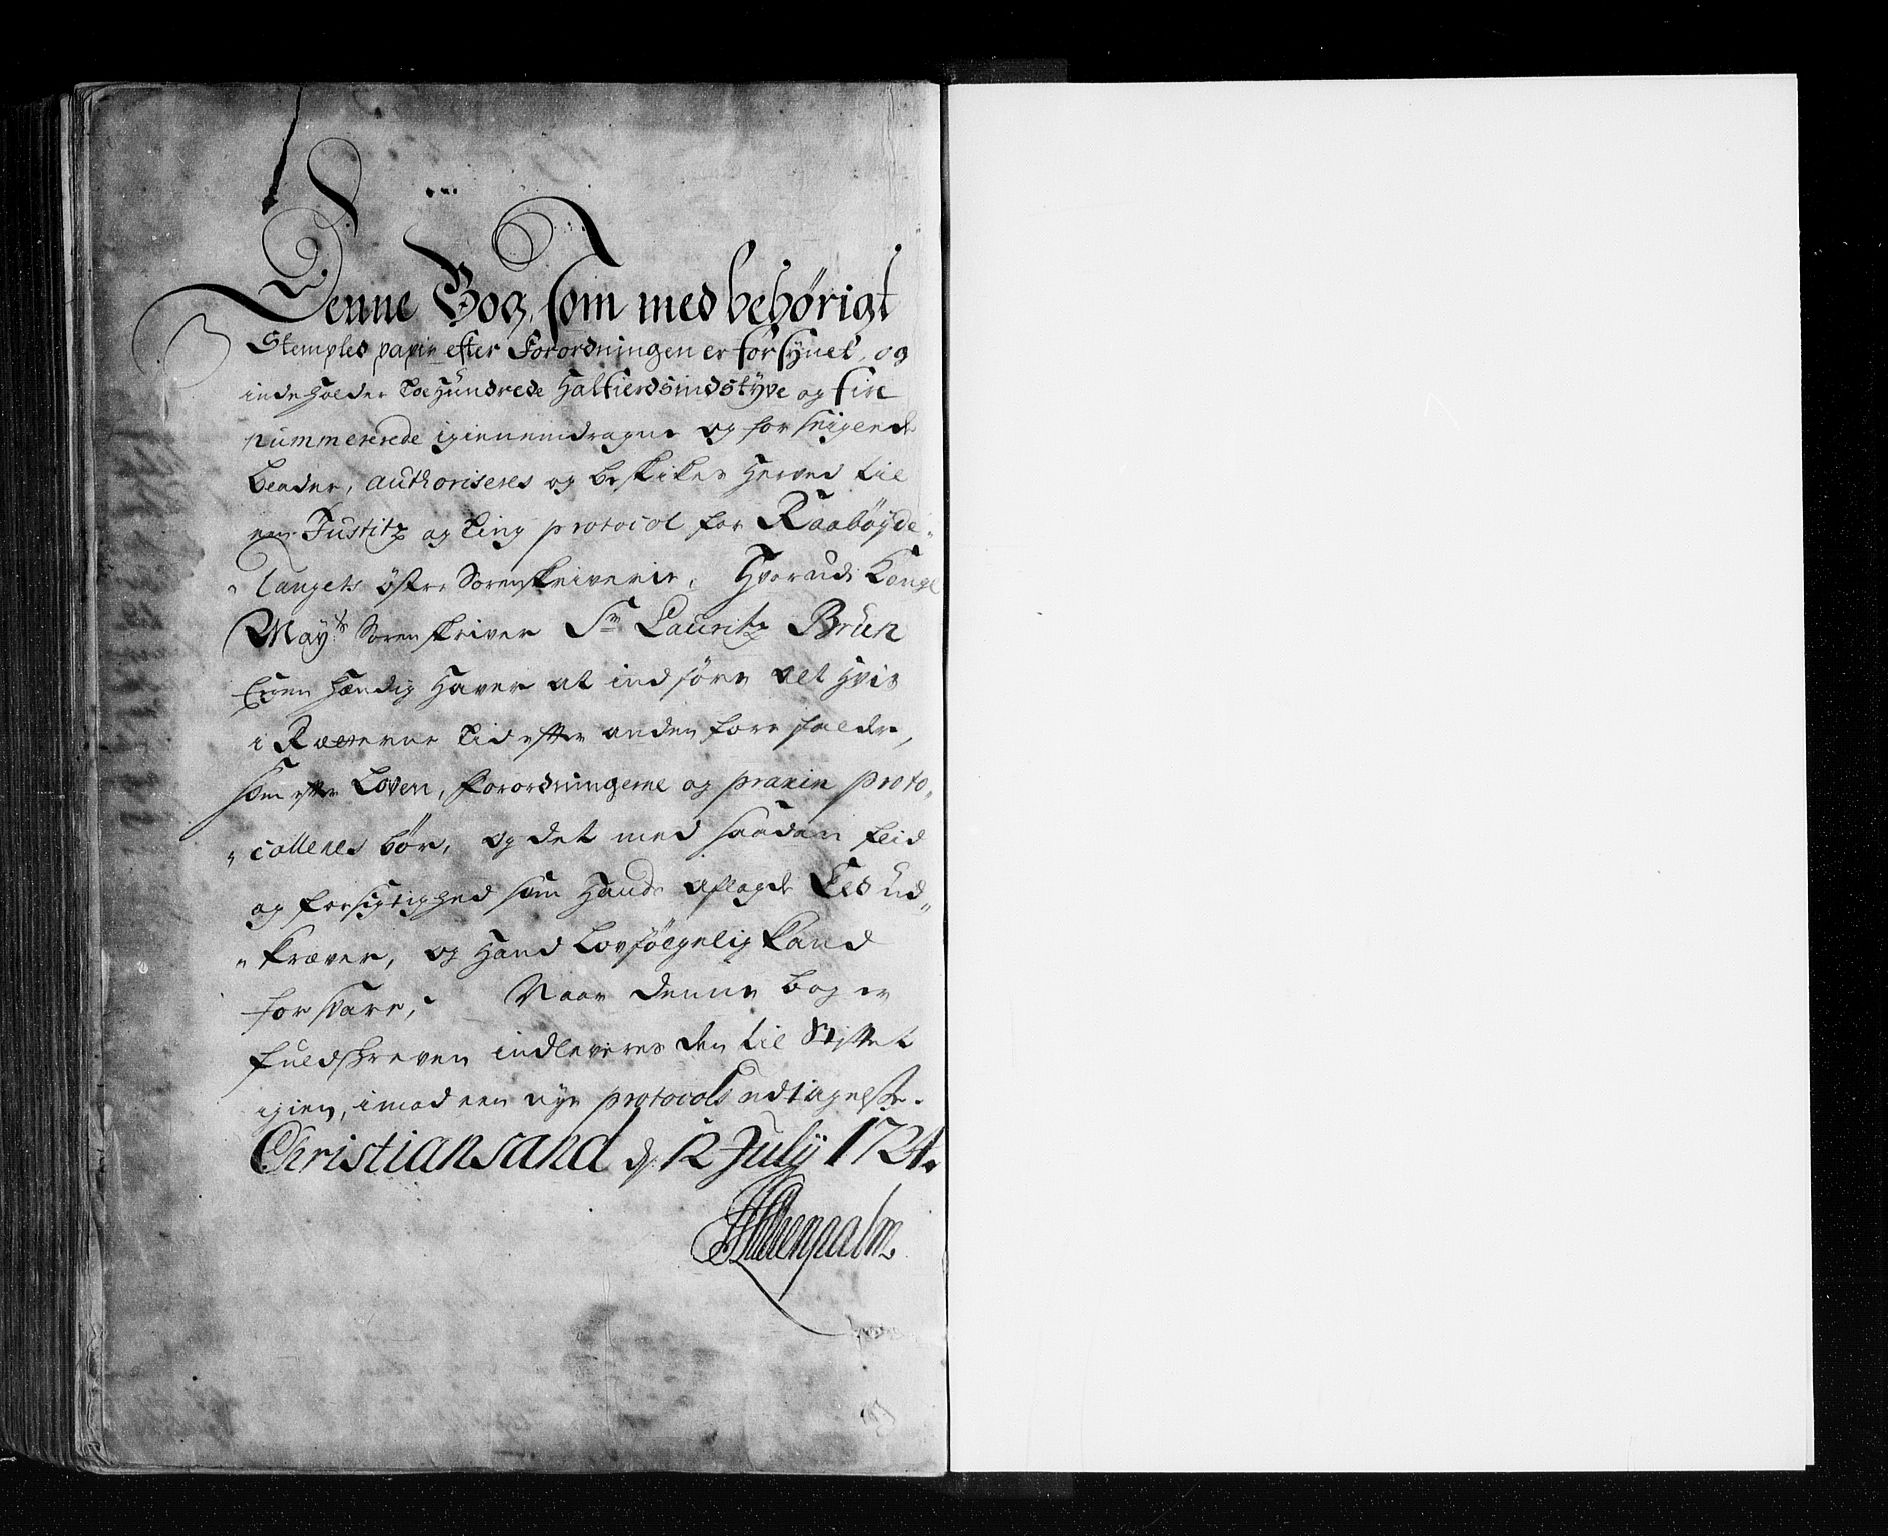 Denne Bog, som med behørigt
Stempled papir efter Forordningen er forsynet, og
indeholder toe Hundrede Halfierdsindstyve og fire
nummererede igiennemdragne og forseigende
blader, authoriseres og beskikes Herved til
een Justitz og Ting protocol for Raabøyde„
„laugets östre Sorenskriverie. Hvorudi Kongl
Mayts. Sorenskriver Sr. Lauritz Brün
Egenhændig Haver at indføre alt Hvis
i Rætterne Tid efter anden forefalder,
som efter Loven, Forordningerne og praxin proto„
„colleres bör, og det med saadan flid
og forsigtighed som Hands aflagde Eed ud„
„kræver, og Hand Lovfølgelig kand
forsvare, Naar denne bog er
fuldskreven indleveres den til Stiftet
igien, imod een nye protocols udtagelse.
Christiansand d. 12 July 1724.